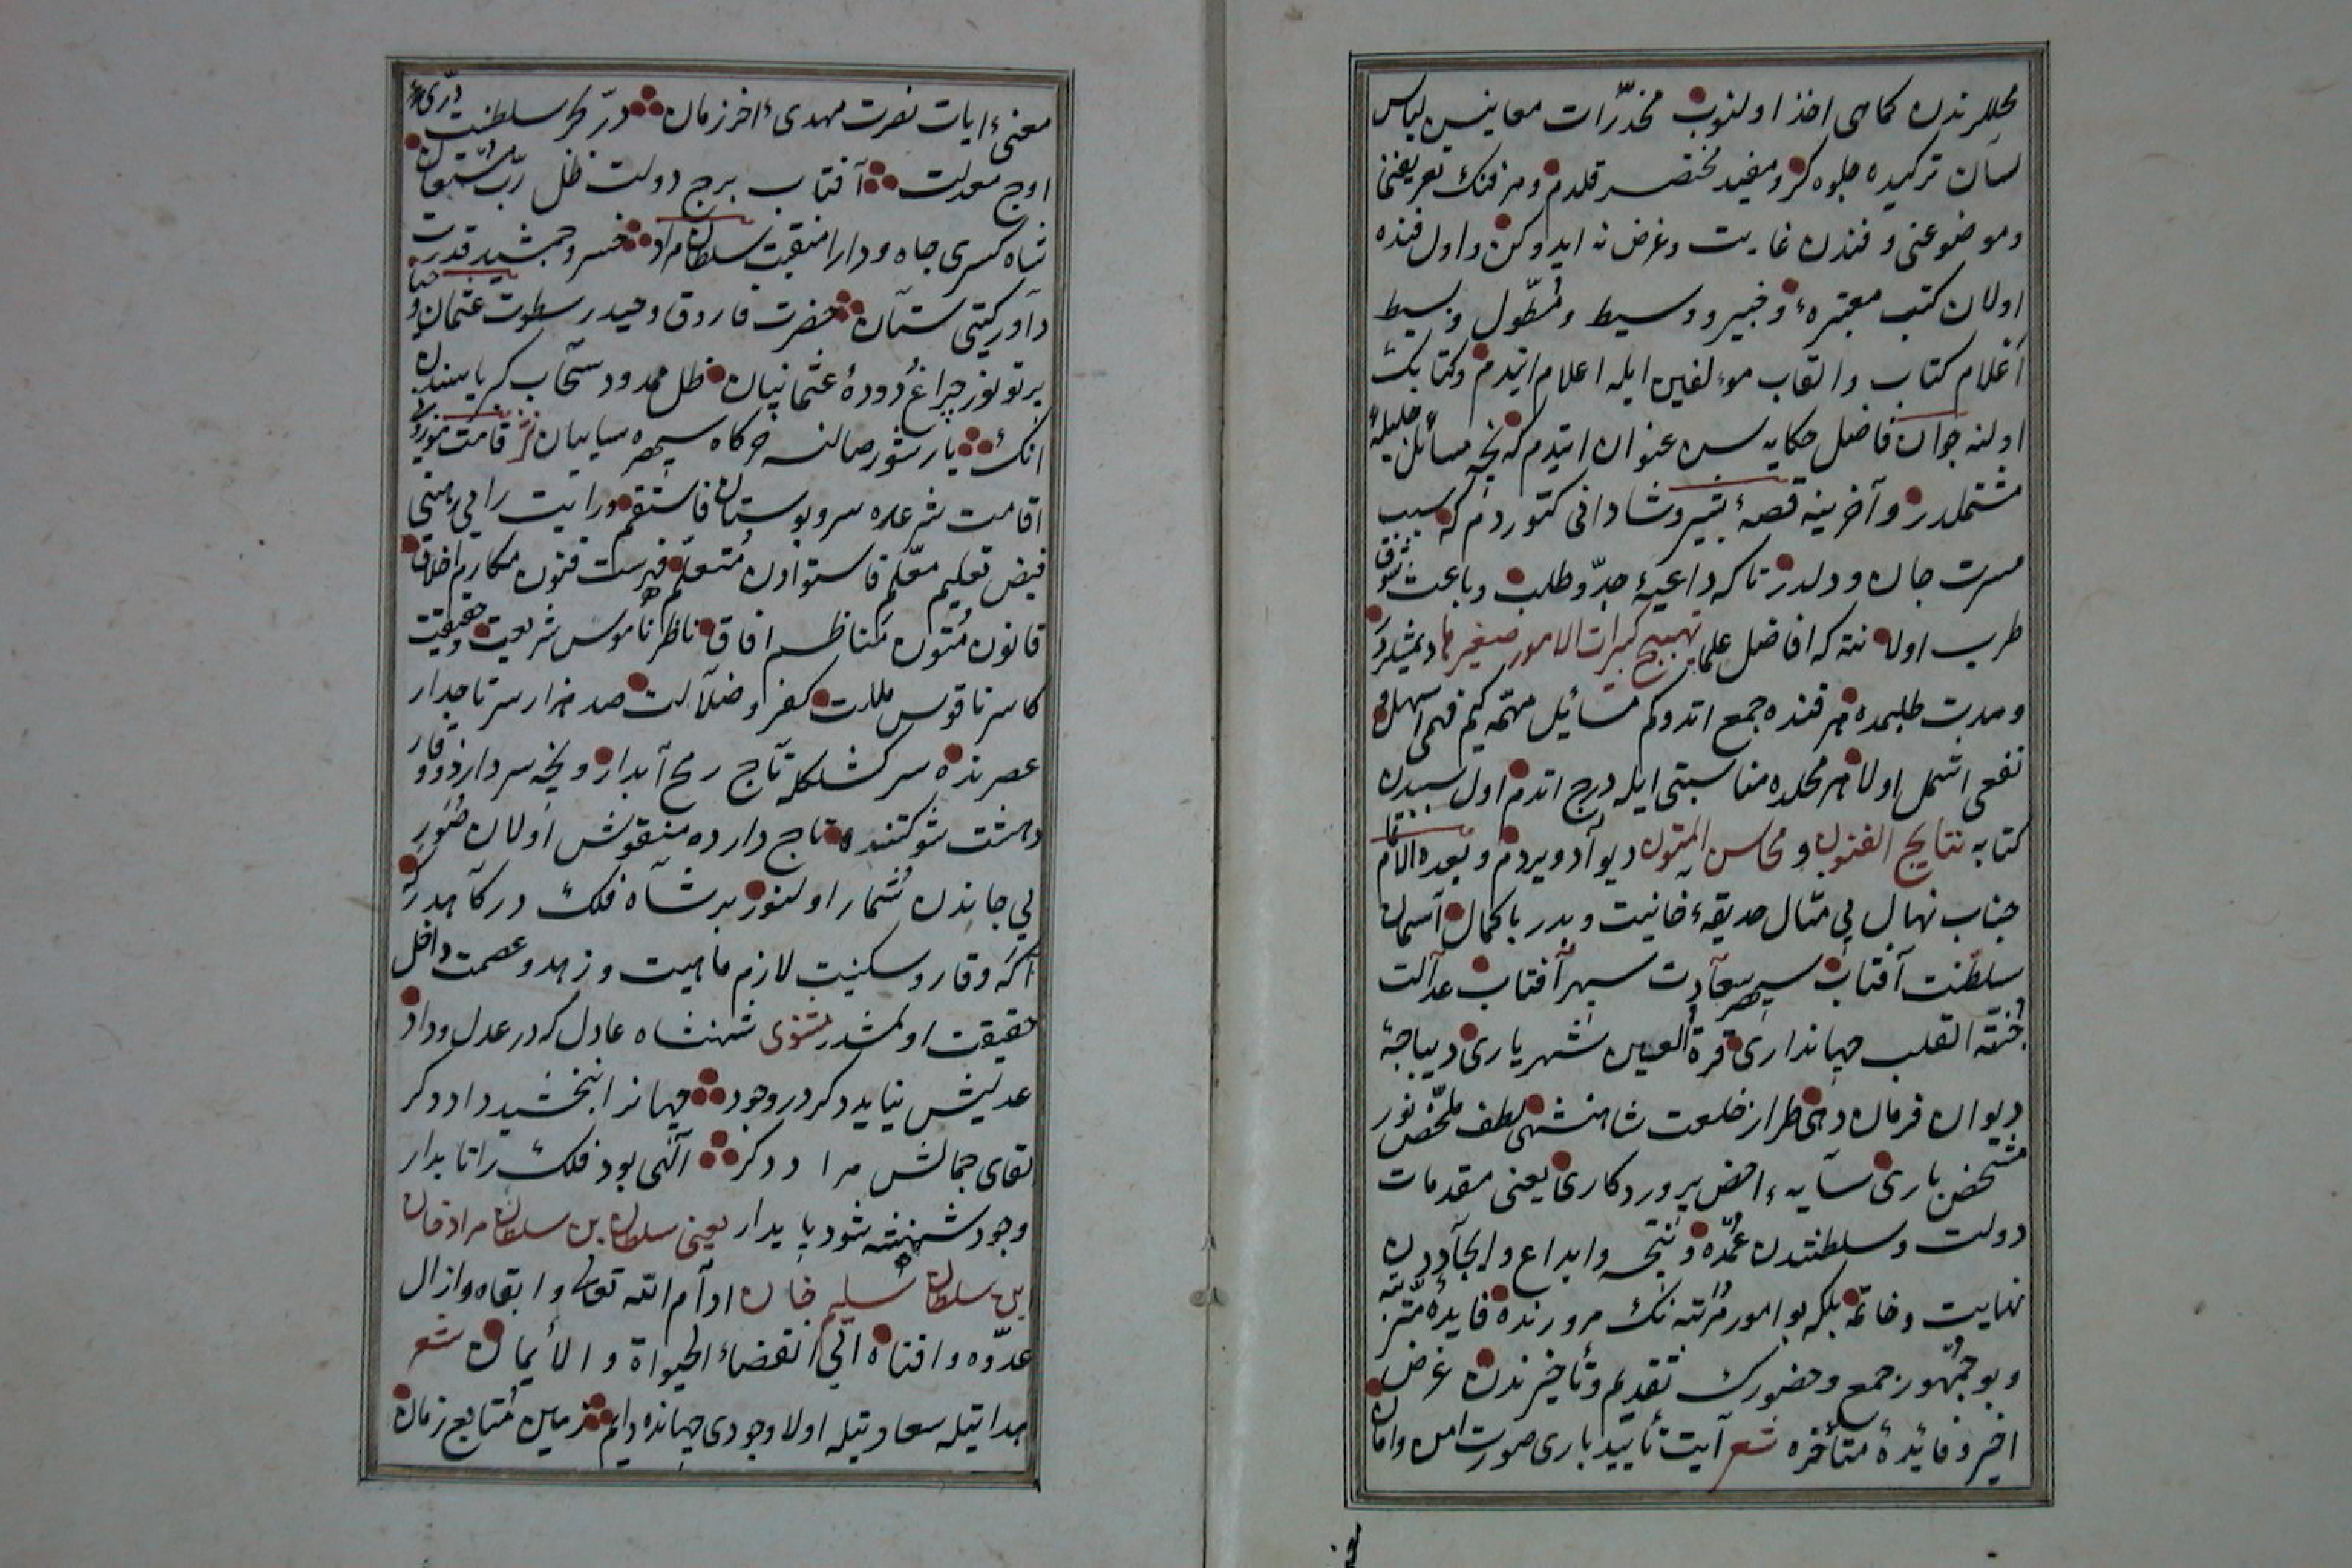 محللرندن كماهى اخذ اولنوب مخدّرات معانيسن لباس
لسان تركيده جلوه كر ومفيد مختصر قلدم وهر فنك تعريفنى
وموضوعنى وفندن غايت وغرض نه ايدوكن واول فنده
اولان كتب معتبرهٔ وخبير ووسيط ومُطوّل وبسيط
أعلام كتاب والقاب مؤلفين ايله اعلام ايتدم وكتابك
اولنه جوان فاضل حكايه سن عنوان ايتدم كه نجه مسائل جليله‌يه
مشتملدر وآخرينه قصهٔ بشير وشادانى كتوردم كه سبب
مسرت جان ودلدر تاكه داعيهٔ جدّ وطلب وباعث شوق
طرب اولا نته كه افاضل علما تهييج كبرات الامور صغيرها ديمشلردر
ومدت طلبمده هر فنده جمع اتدوكم مسائل مهمّه نيم فهمى اسهل و
نفعى اشمل اولا هر محلده مناسبتى ايله درج اتدم اول سببدن
كتابه نتايج الفنون ومحاسن المتون ديو آد ويردم وبعده الامام
جناب نهال بى مثال حديقهٔ خانيت وبدر باكمال آسمان
سلطنت آفتاب سپهر سعادت سپهر آفتاب عدالت
جُنّة القلب جهاندارى قرة العين شهريارى ديباجهٔ
ديوان فرمان دهى طراز خلعت شاهنشهى لطف ملخّص نور
مشخص بارى سايهٔ اخص پروردكارى يعنى مقدمات
دولت وسلطنتدن عمده ونتيجه وابداع وايجاددن
نهايت وخاتمه بلكه بو امور مُرتبه نك مرورنده فايدهٔ مترتبه
وبو جمهور جمع وحضورك تقديم وتأخيرندن غرض
اخير وفائدهٔ متأخره شعر آيت تأييد بارى صورت امن وامان
معنىٔ ايات نصرت مهدىٔ اخر زمان درّ بحر سلطنت درّىٔ
اوج معدلت آفتاب برج دولت ظل ربّ مستعان
شاه كسرى جاه ودارا منقبت سلطان مراد خسرو جمشيد قدرت
داور كيتى ستان حضرت فاروق وحيدر سطوت عثمان حيا و
پرتو نور چراغ دودهٔ عثمانيان ظل ممدود سحاب كبرياسندن
انك يارشور صالنسه خركاه سپهره سايبان نثر قامت موزونى
اقامت شرعده سرو بوستان فاستقم ورايت رأى رهينى
فيض تعليم معلّم قاستوادن مُتعلّم فهرست فنون مكارم اخلاق
قانون مُتون مناظم افاق ناظر ناموس شريعت وحقيقت
كاسر ناقوس ملت كفر وضلالت صد هزار سر تاجدار
عصرنده سركشلكله تاج رمح آبدار ونجه سردار ذو وقار
دهشت شوكتنده تاج دارده منقوش اولان صُوَر
بى جاندن شمار اولنور بر شاه فلك دركاهدر كه
آكه وقار وسكينت لازم ماهيت وزهد وعصمت داخل
حقيقت اولمشدر مثنوى شهنشاه عادل كه در عدل وداد
عديلش نيايد دكر در وجود جهانرا ببخشيد داد دكر
لقاى جمالش مراد دكر الهى بود فلك را تا بدار
وجود شهنشه شود پايدار يعنى سلطان بن سلطان مراد خان
بن سلطان سليم خان ادام الله تعالى وابقاه وازال
عدوّه وافناه الى انقضاء الحيواة والأيمان شعر
هدايتيله سعادتيله اولا وجودى جهانده دايم زمين مُتابع زمان